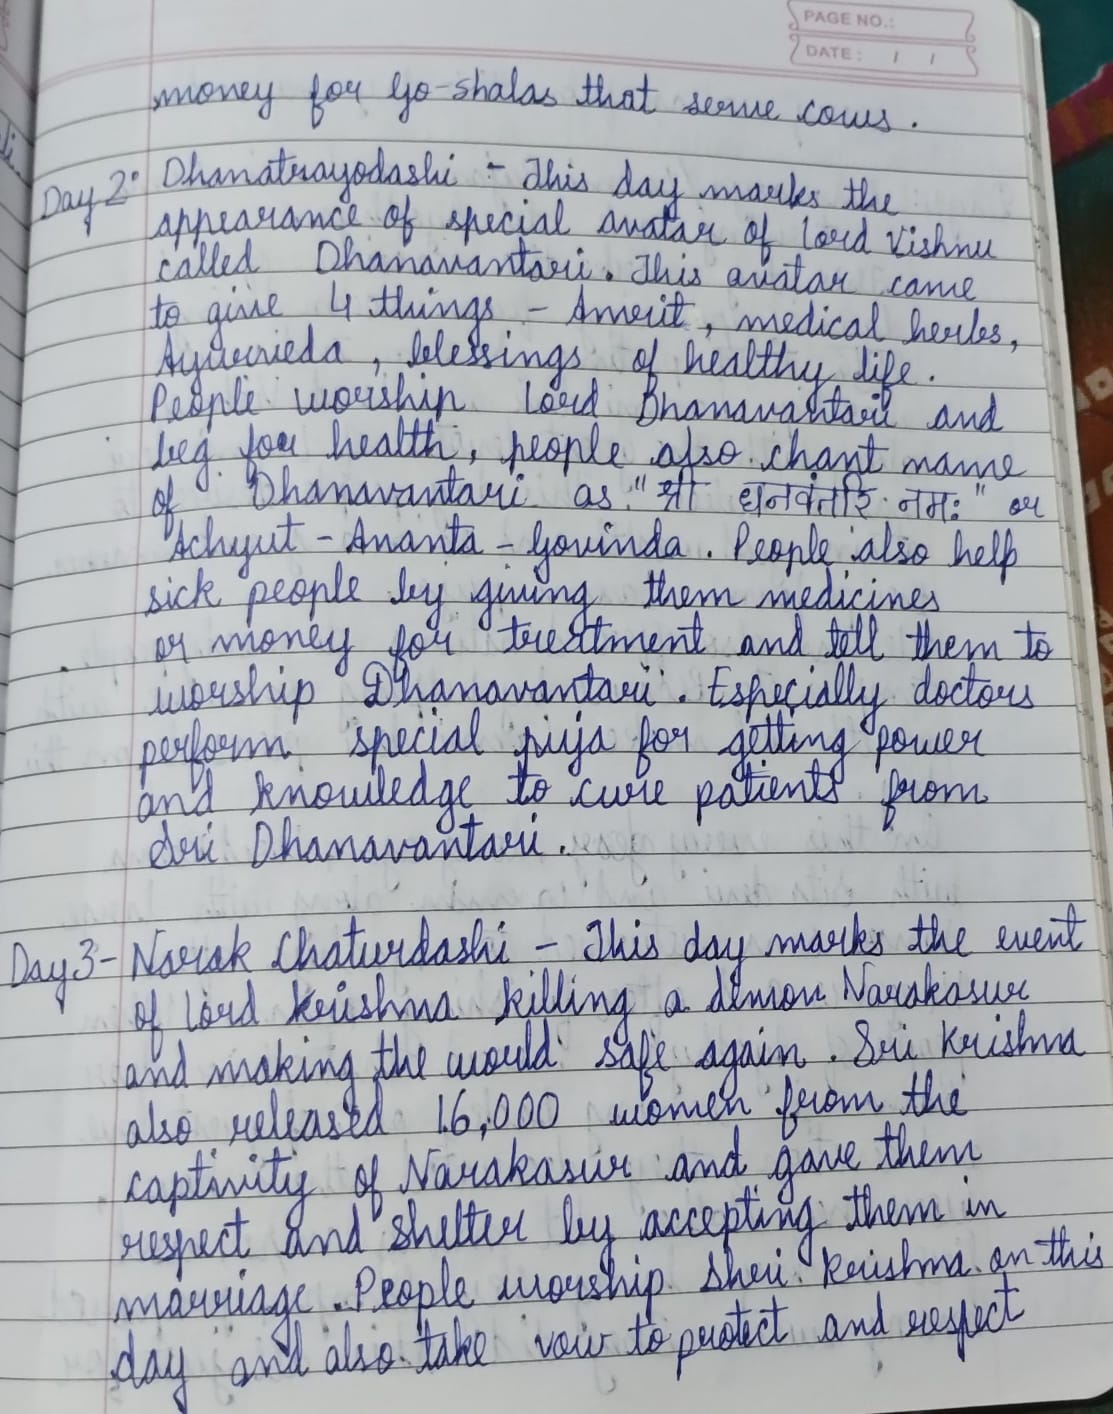 PAGE NO.:
DATE: / /
money for Go-shalas that serve cows.
Day 2: Dhanatrayodashi - This day marks the
appearance of special avatar of lord Vishnu
called Dhanavantari. This avatar came
to give 4 things - Amrit, medical herbs,
Ayurveda, blessings of healthy life.
People worship Lord Dhanavantari and
beg for health, people also chant name
of Dhanavantari as "श्री धनवंतरि नमः" or
Achyut - Ananta - Govinda. People also help
sick people by giving them medicines
or money for treatment and tell them to
worship Dhanavantari. Especially doctors
perform special puja for getting power
and knowledge to cure patients from
Sri Dhanavantari.
Day 3 - Narak Chaturdashi - This day marks the event
of lord Krishna killing a demon Narakasur
and making the would safe again. Sri Krishna
also released 16,000 women from the
captivity of Narakasur and gave them
respect and shelter by accepting them in
marriage. People worship Shri Krishna on this
day and also take vow to protect and respect